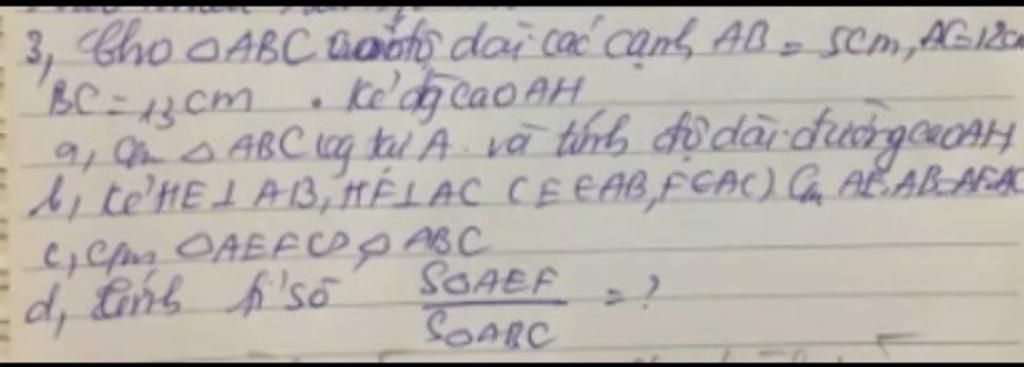 3, Cho △ABC có độ dài các cạnh AB = 5cm, AC=12cm
BC = 13cm . Kẻ đg cao AH
a, Cm △ABC vg tại A và tính độ dài đường cao AH
b, Kẻ HE⊥AB, HF⊥AC (E∈AB, F∈AC) Cm AE.AB=AF.AC
c, Cm △AEF∽△ABC
d, tính tỉ số S△AEF/S△ABC = ?